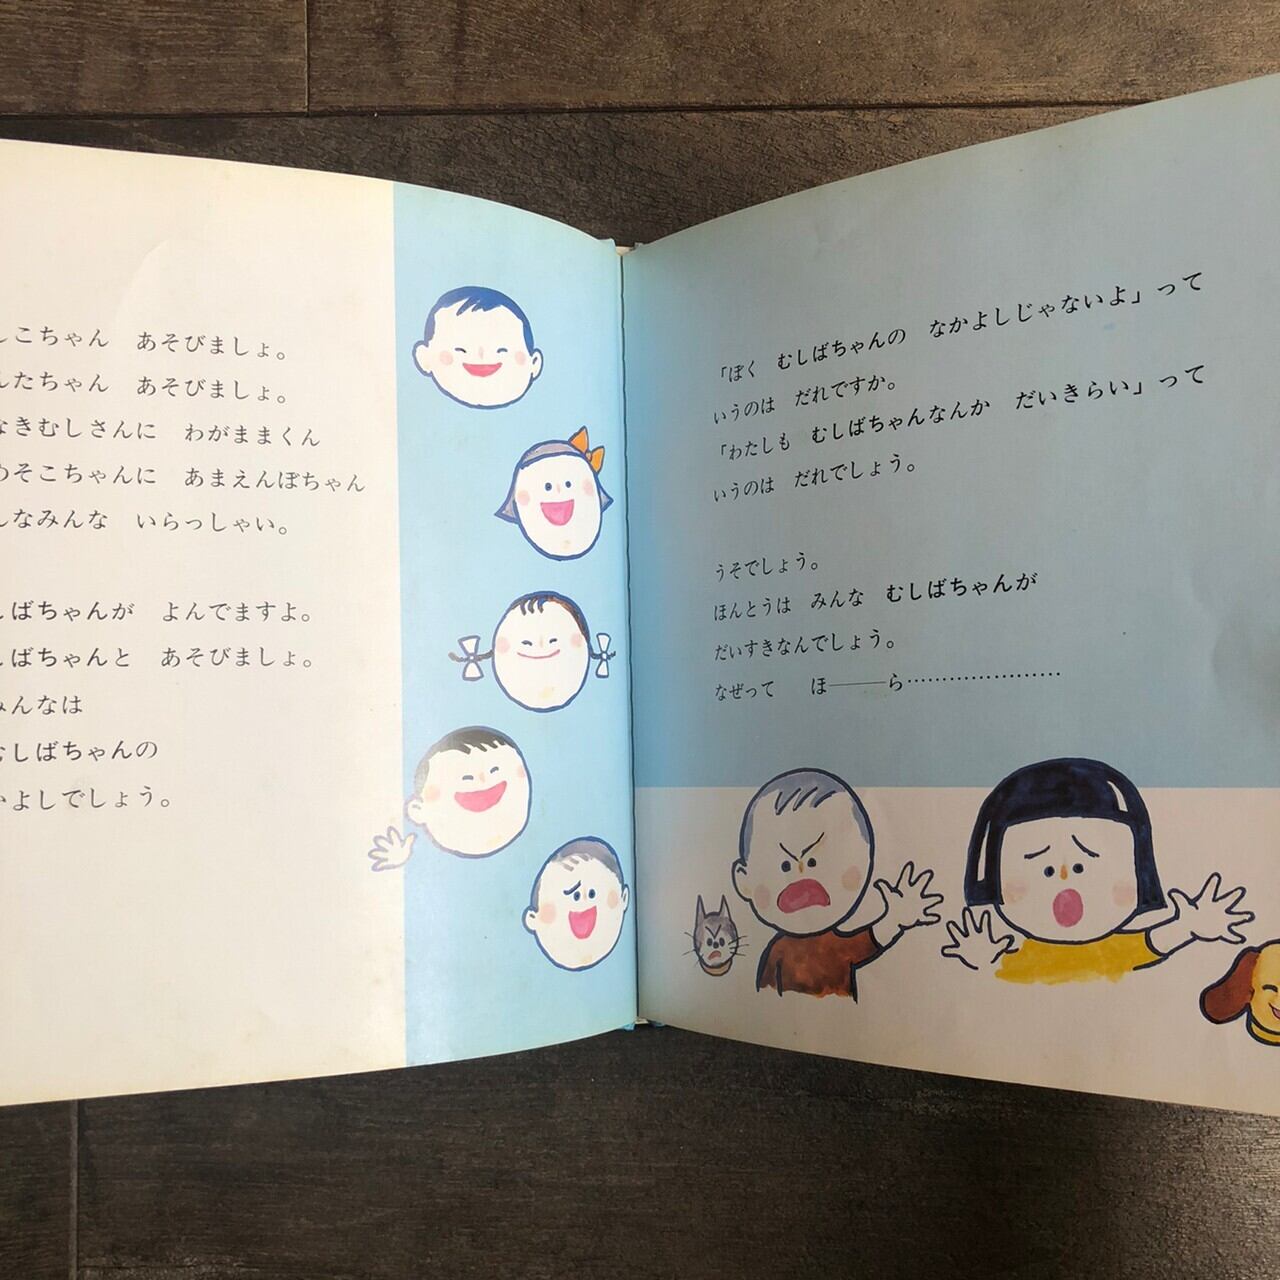 こちゃん　あそびましょ。
たちゃん　あそびましょ。
なきむしさんに　わがままくん
めそこちゃんに　あまえんぼちゃん
んなみんな　いらっしゃい。
しばちゃんが　よんでますよ。
しばちゃんと　あそびましょ。
みんなは
むしばちゃんの
かよしでしょう。
「ぼく　むしばちゃんの　なかよしじゃないよ」って
いうのは　だれですか。
「わたしも　むしばちゃんなんか　だいきらい」って
いうのは　だれでしょう。
うそでしょう。
ほんとうは　みんな　むしばちゃんが
だいすきなんでしょう。
なぜって　ほ――ら…………………